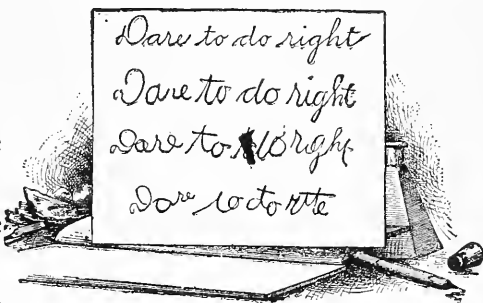 Dare to do right
Dare to do right
Dare to right
Dare to do rite